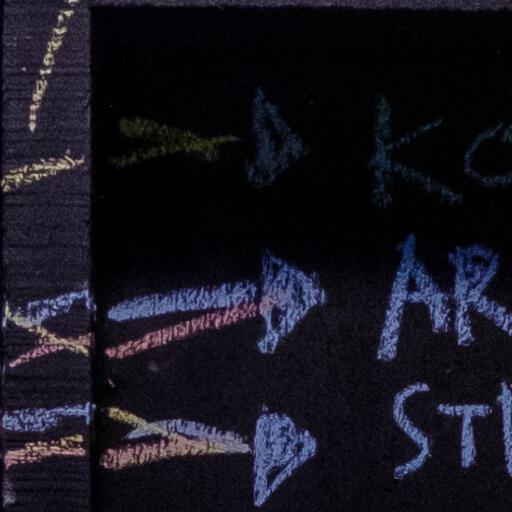 KO
AR
ST